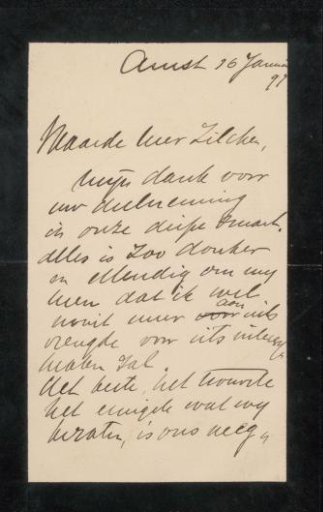 Amst 26 Januari
97
Waarde heer Zilcken,
Mijn dank voor
uw deelneming
in onze diepe smart.
Alles is zoo donker
en ellendig om mij
heen dat ik wel
nooit meer aan iets
vreugde voor iets
zal.
Het beste, het
het eenigste wat wij
bezaten, is ons weg